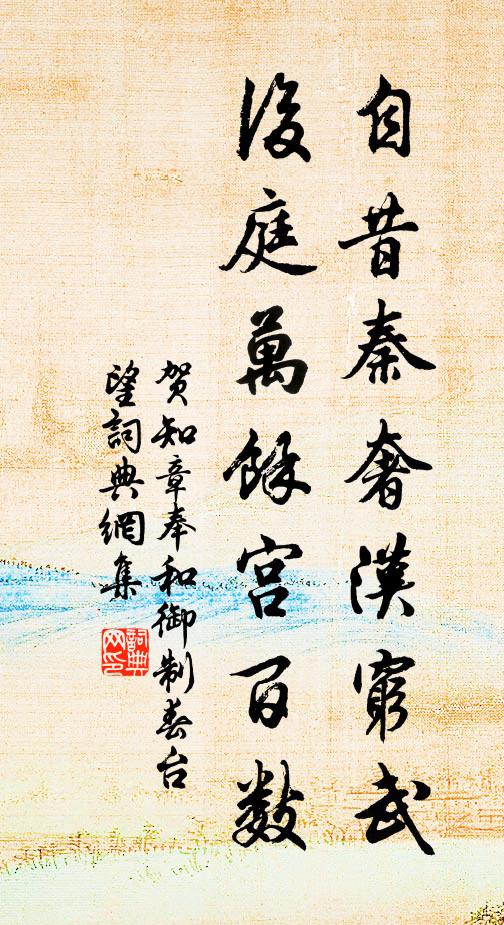 自昔秦奢漢窮武
後庭萬餘宫百數
贺知章奉和御制春台
望詞典網集
詞典
网印